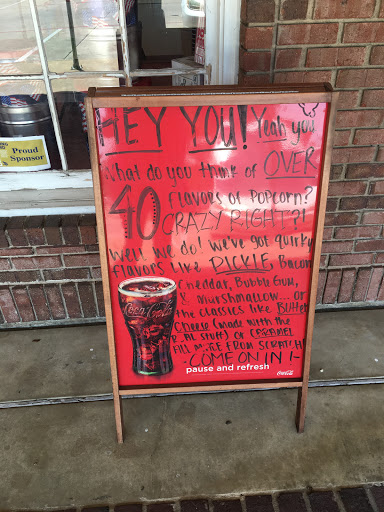 HEY YOU! Yeah you
What do you think of OVER
40 Flavors of Popcorn?
CRAZY RIGHT?!
Well we do! we've got quirky
flavors like PICKLE, Bacon
Cheddar, Bubble Gum,
& Marshmallow... or
the classics like Butter
Cheese (made with the
REAL stuff) or CARAMEL
ALL MADE FROM SCRATCH!
-COME ON IN!-
Coca-Cola
pause and refresh
Coca-Cola
Proud
Sponsor